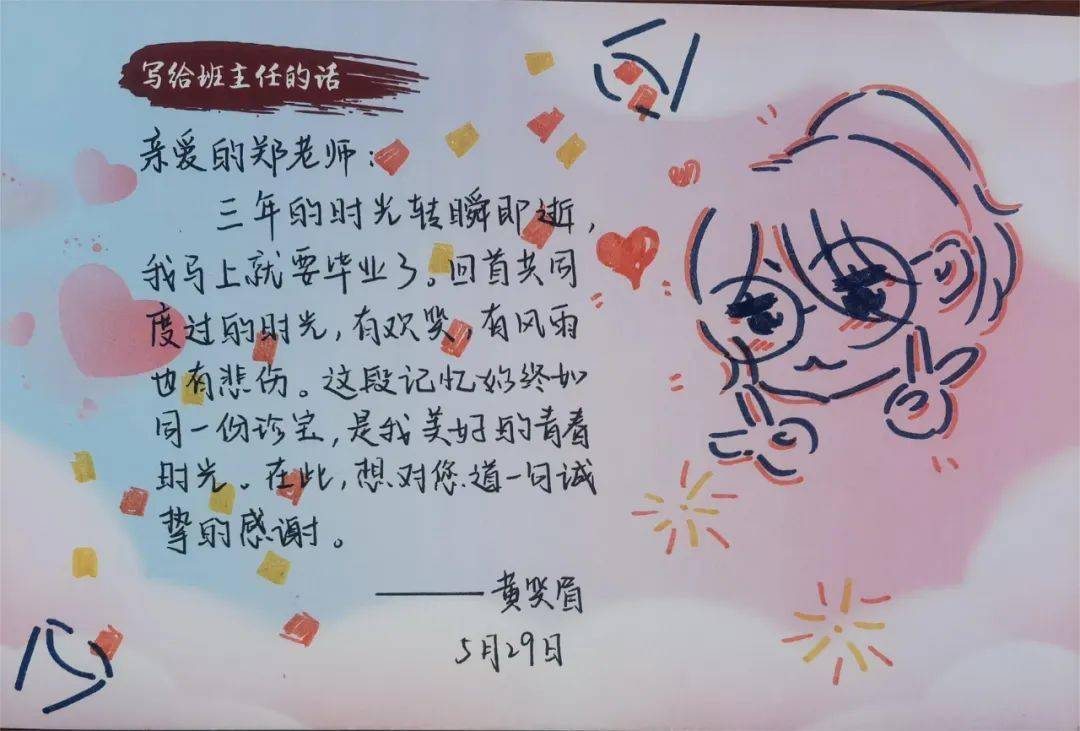 写给班主任的话
亲爱的郑老师：
三年的时光转瞬即逝，
我马上就要毕业了。回首共同
度过的时光，有欢笑，有风雨
也有悲伤。这段记忆始终如
同一份珍宝，是我美好的青春
时光。在此，想对您道一句诚
挚的感谢。
——黄笑眉
5月29日